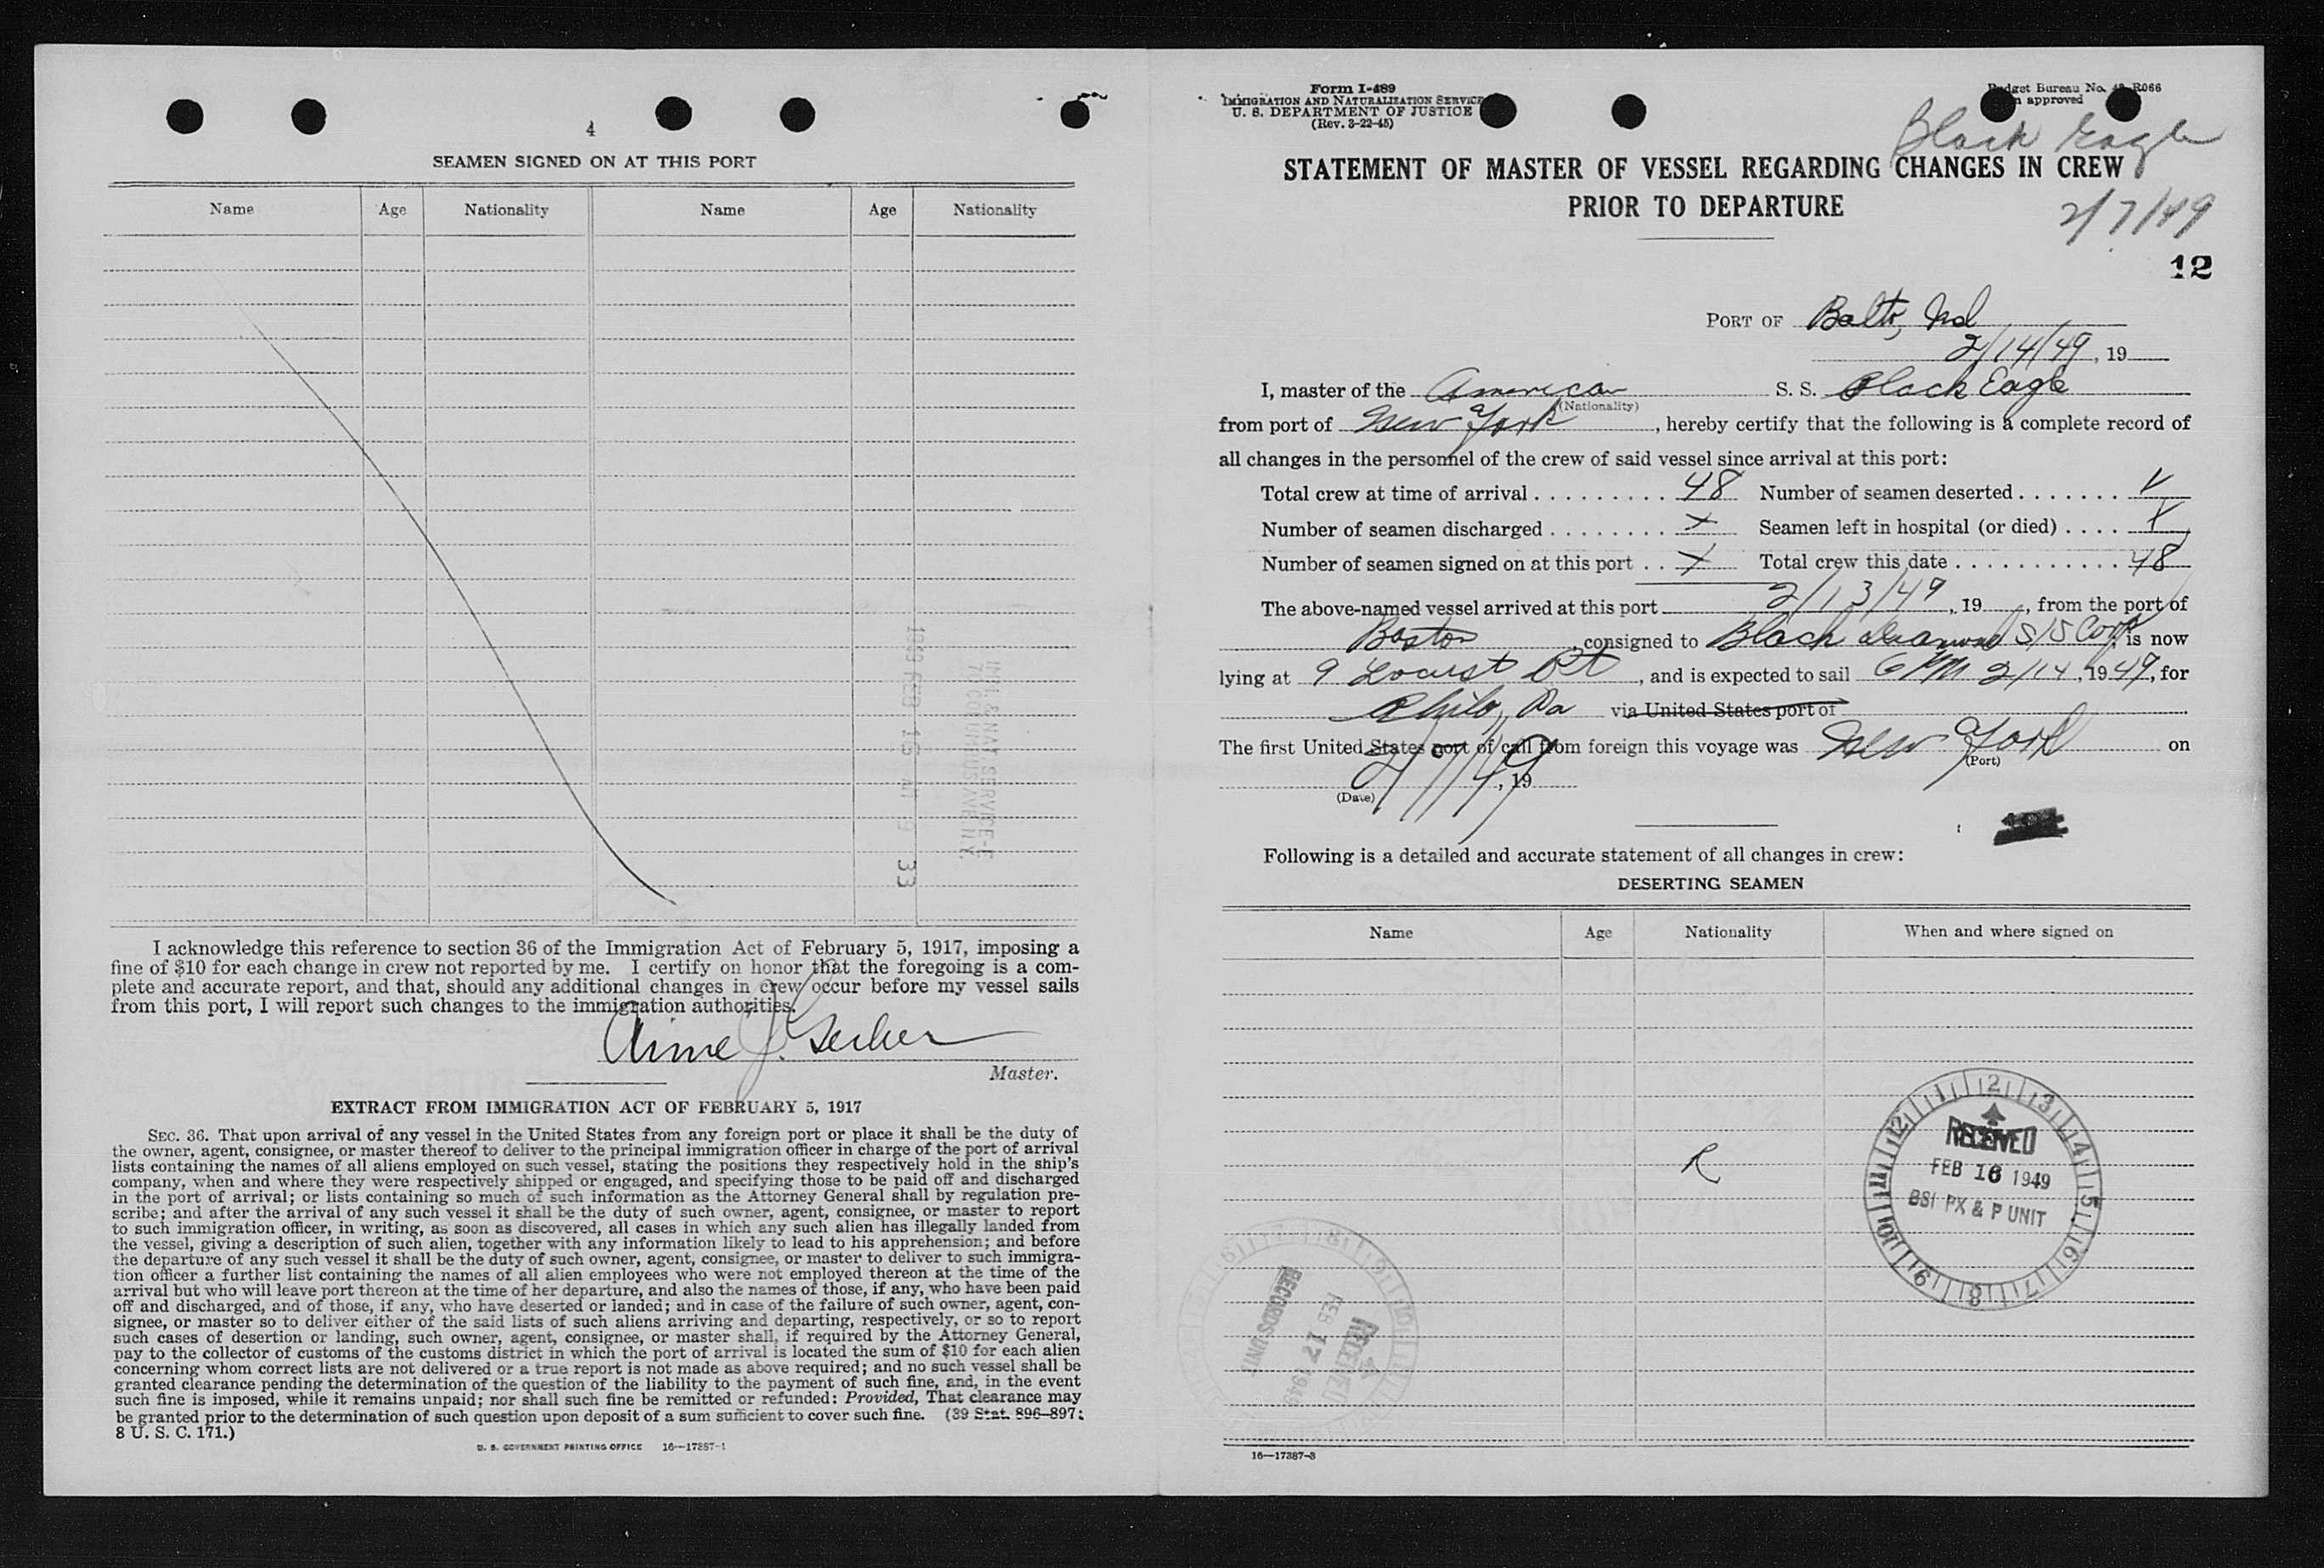 4
SEAMEN SIGNED ON AT THIS PORT
Name Age Nationality Name Age Nationality
1949 FEB 15 AM 9 33
IMMI & NAT. SERVICE-E
70 COLUMBUS AVE N.Y.
I acknowledge this reference to section 36 of the Immigration Act of February 5, 1917, imposing a
fine of $10 for each change in crew not reported by me. I certify on honor that the foregoing is a com-
plete and accurate report, and that, should any additional changes in crew occur before my vessel sails
from this port, I will report such changes to the immigration authorities.
Aime J.
Master.
EXTRACT FROM IMMIGRATION ACT OF FEBRUARY 5, 1917
SEC. 36. That upon arrival of any vessel in the United States from any foreign port or place it shall be the duty of
the owner, agent, consignee, or master thereof to deliver to the principal immigration officer in charge of the port of arrival
lists containing the names of all aliens employed on such vessel, stating the positions they respectively hold in the ship's
company, when and where they were respectively shipped or engaged, and specifying those to be paid off and discharged
in the port of arrival; or lists containing so much of such information as the Attorney General shall by regulation pre-
scribe; and after the arrival of any such vessel it shall be the duty of such owner, agent, consignee, or master to report
to such immigration officer, in writing, as soon as discovered, all cases in which any such alien has illegally landed from
the vessel, giving a description of such alien, together with any information likely to lead to his apprehension; and before
the departure of any such vessel it shall be the duty of such owner, agent, consignee, or master to deliver to such immigra-
tion officer a further list containing the names of all alien employees who were not employed thereon at the time of the
arrival but who will leave port thereon at the time of her departure, and also the names of those, if any, who have been paid
off and discharged, and of those, if any, who have deserted or landed; and in case of the failure of such owner, agent, con-
signee, or master so to deliver either of the said lists of such aliens arriving and departing, respectively, or so to report
such cases of desertion or landing, such owner, agent, consignee, or master shall, if required by the Attorney General,
pay to the collector of customs of the customs district in which the port of arrival is located the sum of $10 for each alien
concerning whom correct lists are not delivered or a true report is not made as above required; and no such vessel shall be
granted clearance pending the determination of the question of the liability to the payment of such fine, and, in the event
such fine is imposed, while it remains unpaid; nor shall such fine be remitted or refunded: Provided, That clearance may
be granted prior to the determination of such question upon deposit of a sum sufficient to cover such fine. (39 Stat. 896–897;
8 U. S. C. 171.)
U. S. GOVERNMENT PRINTING OFFICE 16—17387-1
Form I-489
IMMIGRATION AND NATURALIZATION SERVICE
U. S. DEPARTMENT OF JUSTICE
(Rev. 3-22-45)
Budget Bureau No. 43-R066
approved
Black Eagle
STATEMENT OF MASTER OF VESSEL REGARDING CHANGES IN CREW
PRIOR TO DEPARTURE
2/7/49
12
PORT OF Balto, Md
2/14/49, 19
I, master of the American S. S. Black Eagle
(Nationality)
from port of New York, hereby certify that the following is a complete record of
all changes in the personnel of the crew of said vessel since arrival at this port:
Total crew at time of arrival . . . . . . . . . 48 Number of seamen deserted . . . . . . . ✓
Number of seamen discharged . . . . . . . . X Seamen left in hospital (or died) . . . . X
Number of seamen signed on at this port . . X Total crew this date . . . . . . . . . . . 48
The above-named vessel arrived at this port 2/13/49, 19, from the port of
Boston, consigned to Black Diamond S/S Corp, is now
lying at 9 Locust Pt, and is expected to sail 6 PM 2/14, 1949, for
Phila, Pa via United States port of
The first United States port of call from foreign this voyage was New York on
(Port)
2/7/49, 19
(Date)
Following is a detailed and accurate statement of all changes in crew:
DESERTING SEAMEN
Name Age Nationality When and where signed on
R
1 2 3 4 5 6 7 8 9 10 11 12
RECEIVED
FEB 16 1949
BSI PX & P UNIT
RECEIVED
FEB 17 1949
RECORDS UNIT
16—17387-3